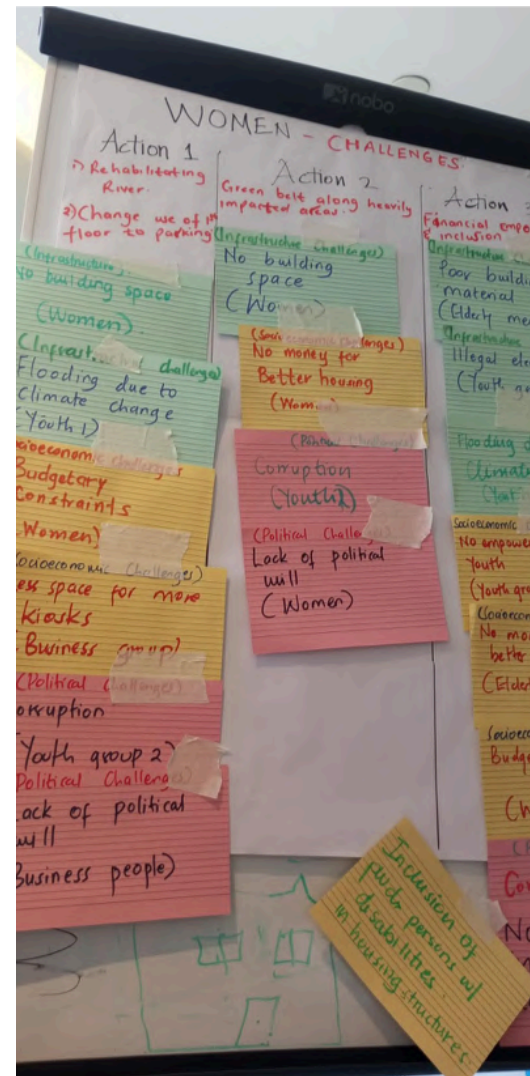 nobo
WOMEN - CHALLENGES.
Action 1
1) Rehabilitating
River.
2) Change use of 1st
floor to parking
(Infrastructure)
No building space
(Women).
(Infrast challenges)
Flooding due to
climate change
(Youth 1)
Socioeconomic challenges
Budgetary
Constraints
Women)
Socioeconomic Challenges)
ess space for more
kiosks
Business group)
(Political Challenges)
orruption
Youth group 2)
Political Challenge)
ack of political
will
Business people)
Action 2
Green belt along heavily
impacted areas.
(Infrastructure Challenges)
No building
space
(Women)
(Socioeconomic Challenges)
No money for
Better housing
(Women)
(Political Challenges)
Corruption
(Youth 2)
(Political Challe
Lack of political
will
(Women)
Action
Financial empo
& inclusion
Infrastructure
Poor buildi
material
(Elderly me
Infrastructure
Illegal ele
(Youth g
Flooding d
Climat
(Yout
Socioeconomic
No empower
Youth
(Youth gro
(Socioecon
No mo
better
(Elder
Socioeco
Budg
(W
Co
No
Inclusion of
pwds persons w/
disabilities
in housing structures.